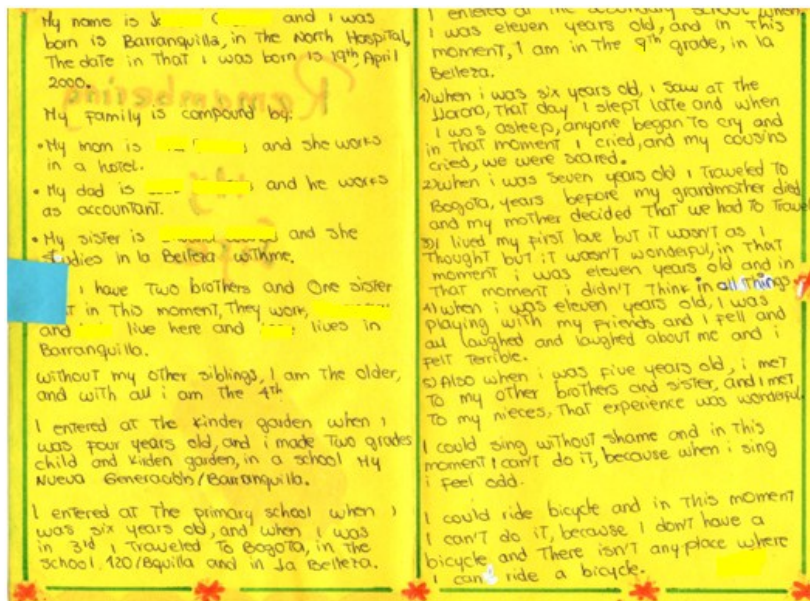 My name is and I was
born is Barranquilla, in the North Hospital,
The date in that I was born is 19th, April
2000.
My family is compound by:
• My mom is and she works
in a hotel.
• My dad is and he works
as accountant.
• My sister is and she
studies in la Belleza withme.
I have two brothers and One sister
in this moment, They work,
and live here and lives in
Barranquilla.
without my other siblings, I am the older,
and with all i am the 4th
I entered at the kinder garden when I
was four years old, and i made two grades
child and kinden garden, in a school My
Nueva Generación/Barranquilla.
I entered at the primary school when I
was six years old, and when I was
in 3rd I traveled to Bogota, in the
school, 120/Bquilla and in la Belleza.
I entered at the secondary school when
I was eleven years old, and in this
moment, I am in the 9th grade, in la
Belleza.
1) when i was six years old, I saw at the
llorona, that day I slept late and when
I was asleep, anyone began to cry and
in that moment I cried, and my cousins
cried, we were scared.
2) when i was seven years old I traveled to
Bogota, years before my grandmother died
and my mother decided that we had to travel
3) I lived my first love but it wasn't as I
thought but it wasn't wonderful, in that
moment i was eleven years old and in
that moment i didn't think in all things
4) when i was eleven years old, I was
playing with my friends and I fell and
all laughed and laughed about me and i
felt terrible.
5) Also when i was five years old, i met
to my other brothers and sister, and I met
to my nieces, that experience was wonderful.
I could sing without shame and in this
moment I can't do it, because when i sing
i feel odd.
I could ride bicycle and in this moment
I can't do it, because I don't have a
bicycle and there isn't any place where
I can ride a bicycle.